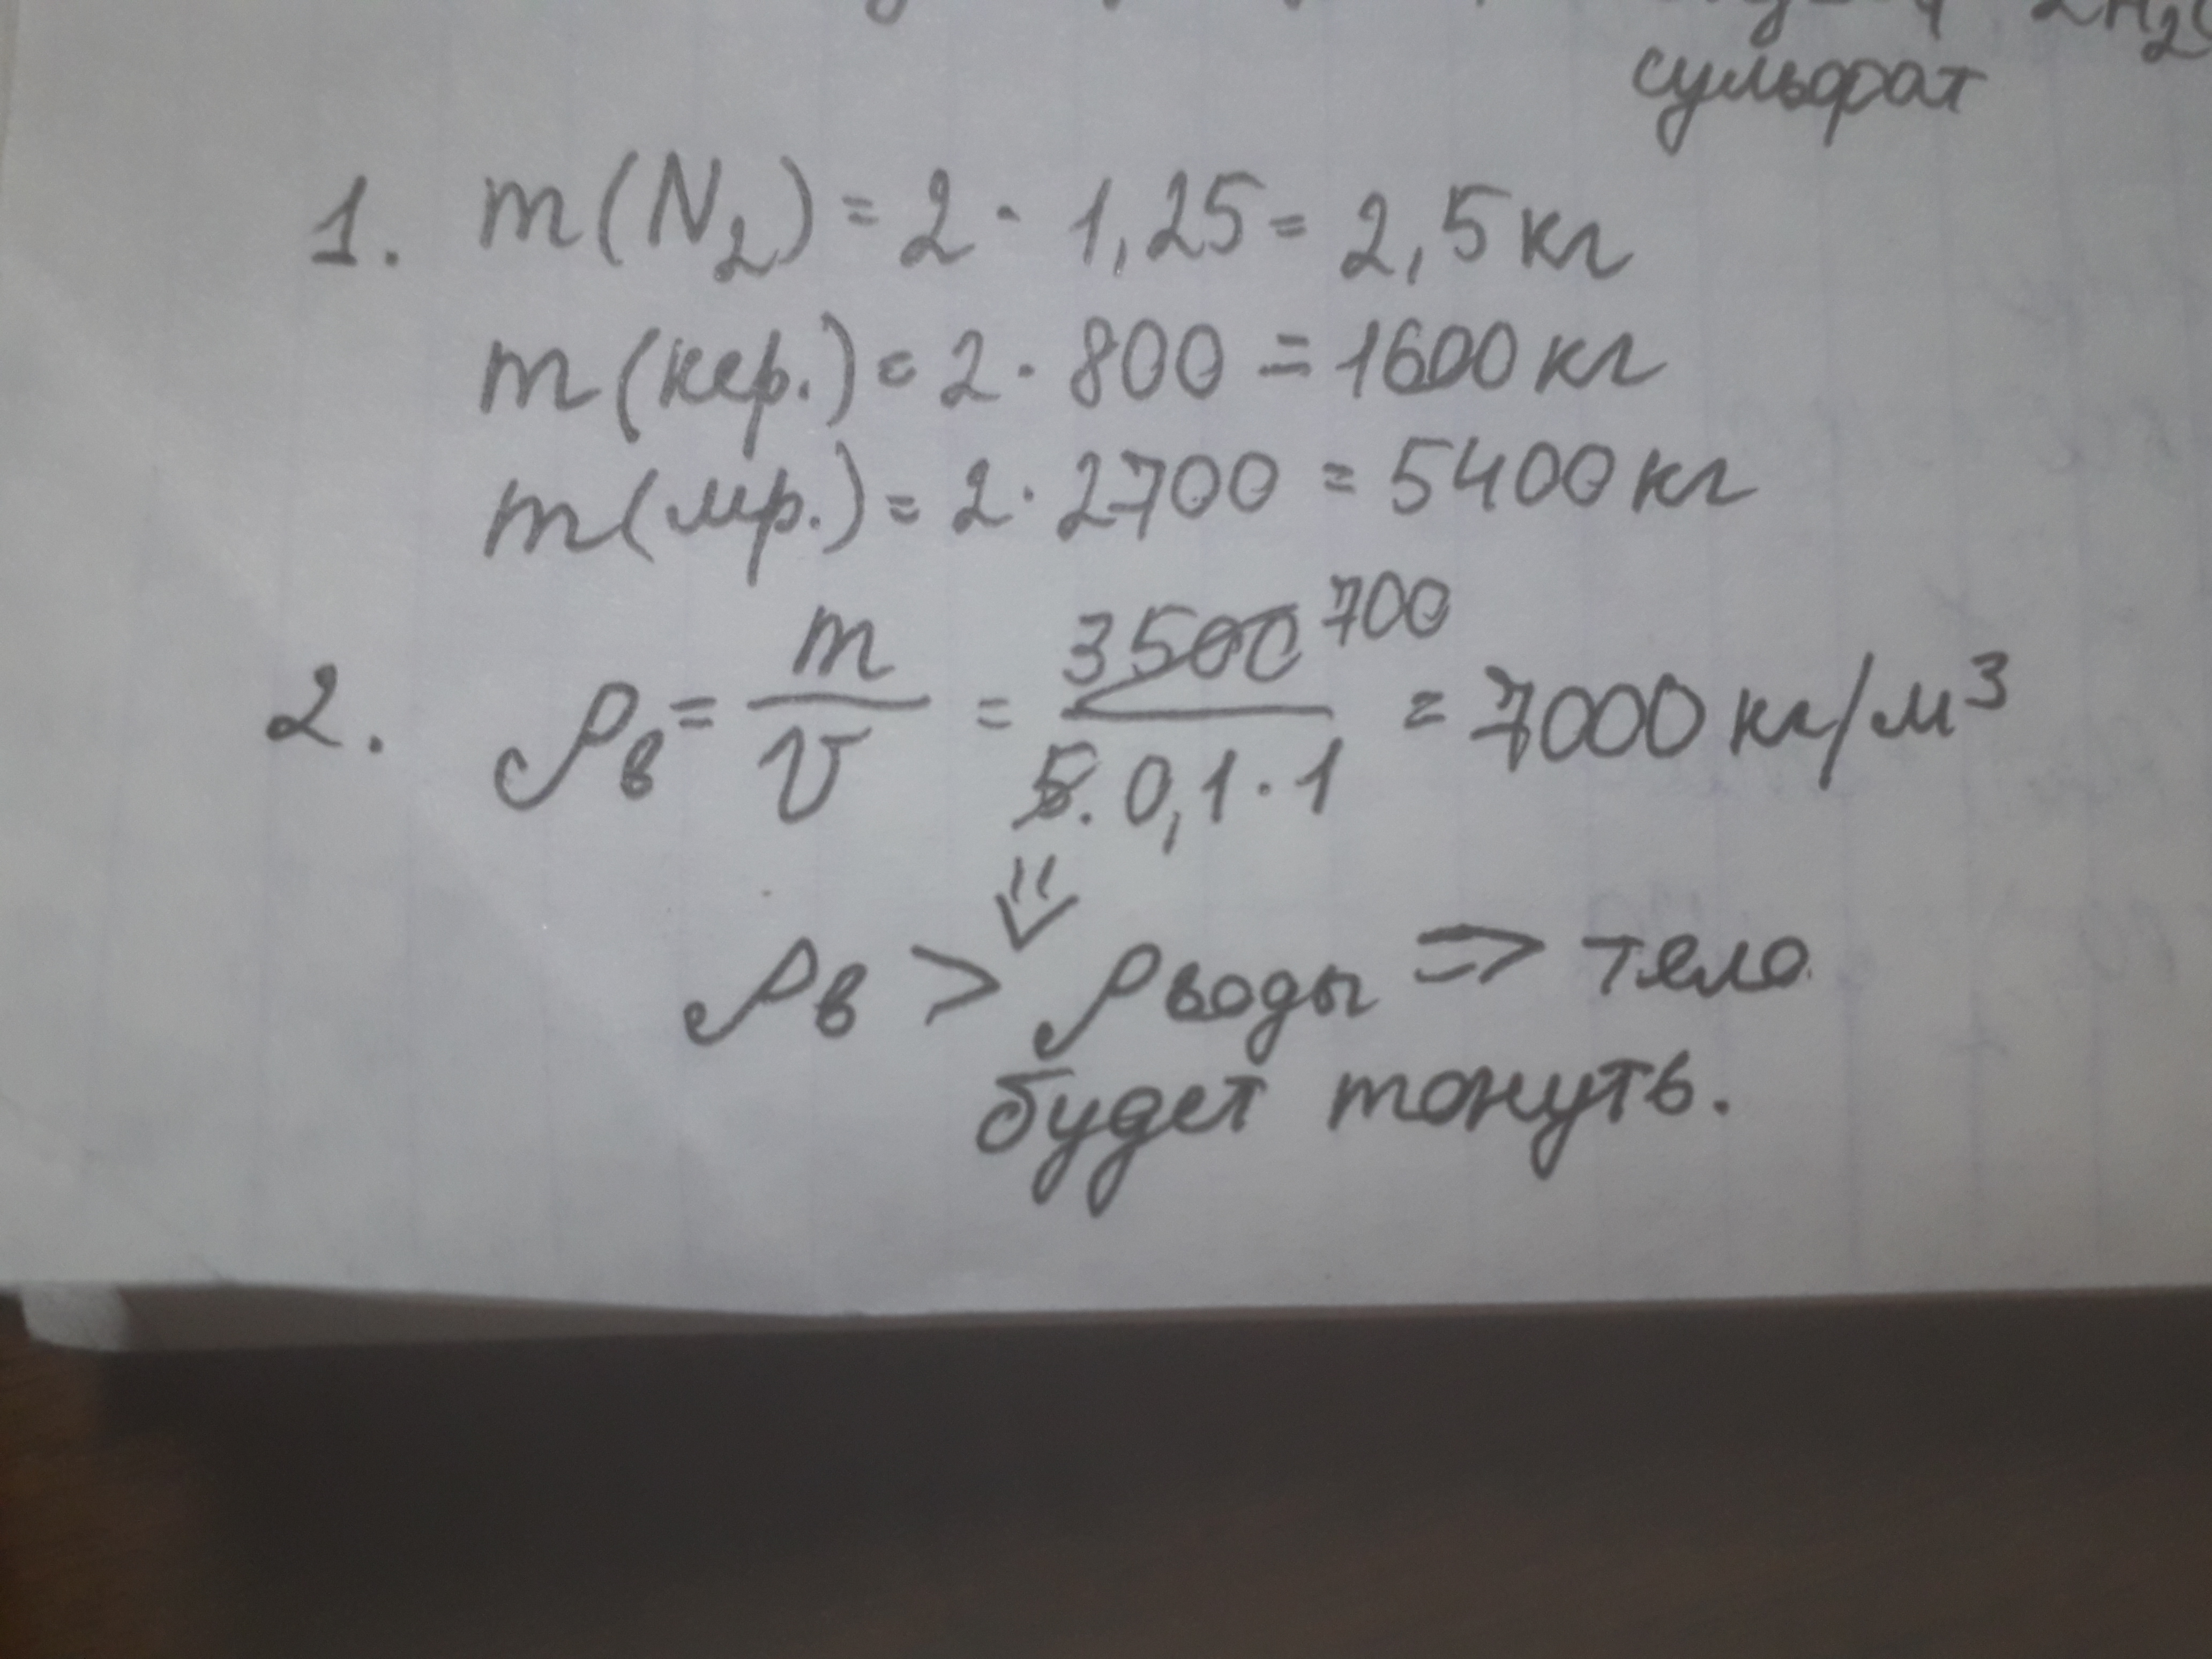 2H₂
сульфат
1. m(N₂) = 2 · 1,25 = 2,5 кг
m(кер.) = 2 · 800 = 1600 кг
m(мр.) = 2 · 2700 = 5400 кг
2. ρв = m/V = 3500 700 / 5 · 0,1 · 1 = 7000 кг/м³
⇓
ρв > ρводы => тело
будет тонуть.